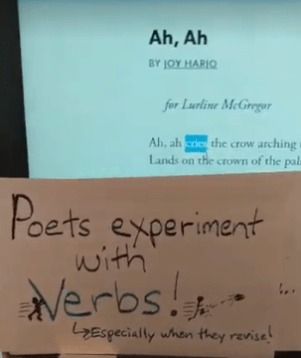 Ah, Ah
BY JOY HARJO
for Lurline McGregor
Ah, ah cries the crow arching
Lands on the crown of the pal
Poets experiment
with
Verbs!
↳Especially when they revise!